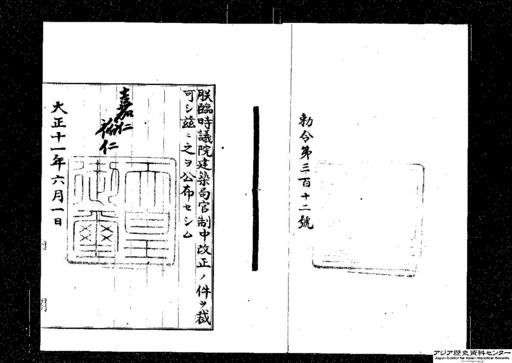 勅令第三百十二號
朕臨時議院建築局官制中改正ノ件ヲ裁
可シ玆ニ之ヲ公布セシム
嘉仁
裕仁
天皇御璽
大正十一年六月一日
アジア歴史資料センター
Japan Center for Asian Historical Records